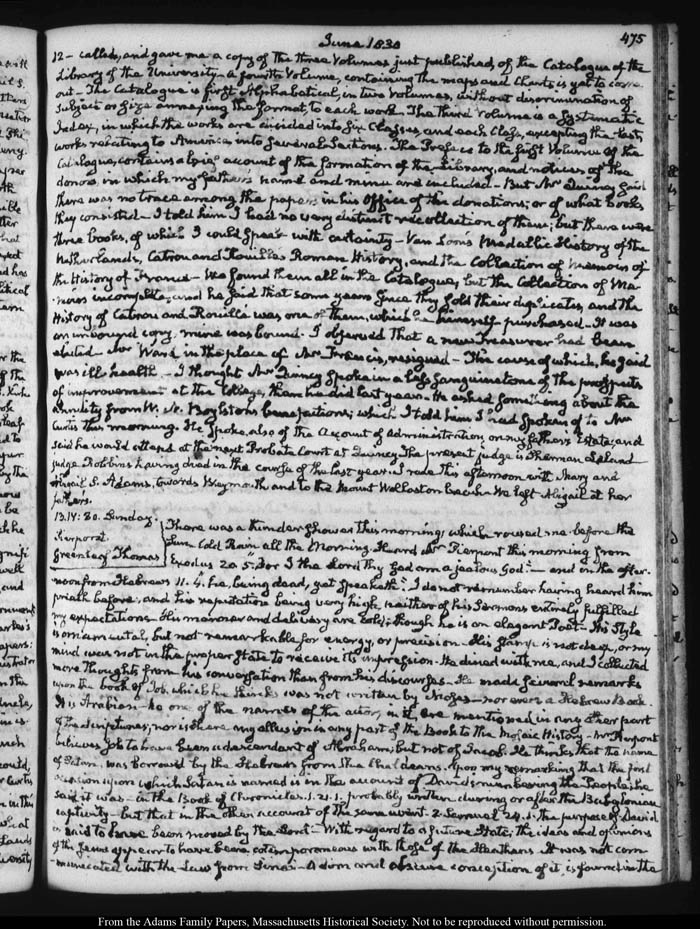 June 1830
475
12 - called, and gave me a copy of the three Volumes just published, of the Catalogue of the
Library of the University - A fourth Volume, containing the maps and Charts is yet to come
out - The Catalogue is first Alphabetical, in two Volumes, without discrimination of
Subject or size annexing the format, to each work. The third Volume is a Systematic
Index, in which the works are divided into Six Classes, and each Class, excepting the last,
works relating to America into several Sections. The Preface to the first Volume of the
Catalogue, contains a brief account of the formation of the Library, and notices of the
donors, in which my father's name and mine are included - But Mr Quincy said
there was no trace among the papers in his Office of the donations; or of what books
they consisted - I told him I had no very distinct recollection of them; but there were
three books, of which I could speak with certainty - Van Loon's Medallic History of the
Netherlands, Catrou and Rouille's Roman History, and the Collection of Memoirs of
the History of France - We found them all in the Catalogue, but the Collection of Me-
moirs incomplete, and he said that some years since they sold their duplicates, and the
History of Catrou and Rouille was one of them, which he himself purchased - It was
an unbound copy. mine was bound - I observed that a new Treasurer had been
elected - Mr Ward in the place of Mr Francis, resigned - The cause of which, he said
was ill health - I thought Mr Quincy spoke in a less sanguine tone of the prospects
of improvement at the College, than he did last year - He asked something about the
annuity from W. N. Boylston's benefactions; which I told him I had spoken of to Mr
Curtis this morning. He spoke also of the Account of administration on my father's Estate; and
said he would attend at the next Probate Court at Quincy. The present judge is Sherman Leland
judge Robbins having died in the course of the last year. I rode this afternoon with Mary and
Abigail S. Adams, towards Weymouth and to the Mount Wollaston beach - We left Abigail at her
father's.
13. IV: 30. Sunday.
Pierpont.
Greenleaf Thomas
There was a thunder shower this morning, which roused me before the
Sun. Cold Rain all the Morning. Heard Mr Pierpont this morning from
Exodus 20. 5. For I the Lord thy God am a jealous God - and in the after-
noon from Hebrews 11. 4. he, being dead, yet speaketh. I do not remember having heard him
preach before, and his reputation being very high, neither of his Sermons entirely fulfilled
my expectations - His manner and delivery are cold; though he is an elegant Poet - His Style
is ornamental, but not remarkable for energy, or precision - His stamp is not deep, or my
mind was not in the proper state to receive its impression - He dined with me, and I collected
more thoughts from his conversation than from his discourses - He made several remarks
upon the book of Job, which he thinks was not written by Moses - nor even a Hebrew Book.
It is Arabian - no one of the names of the actors in it, are mentioned in any other part
of the Scriptures; nor is there any allusion in any part of the Book to the Mosaic History - Mr Pierpont
believes Job to have been a descendant of Abraham; but not of Jacob. He thinks that the name
of Satan, was borrowed by the Hebrews from the Chaldeans. Upon my remarking that the first
occasion upon which Satan is named is in the account of David's numbering the People; he
said it was - in the Book of Chronicles. 1. 21. 1. probably written during or after the Babylonian
captivity - but that in the other account of the same event 2 Samuel 24. 1. the purpose of David
is said to have been moved by the Lord - With regard to a future State; the ideas and opinions
of the Jews appear to have been cotemporaneous with those of the Heathens. It was not com-
municated with the Law from Sinai - A dim and obscure conception of it, is found in the
From the Adams Family Papers, Massachusetts Historical Society. Not to be reproduced without permission.